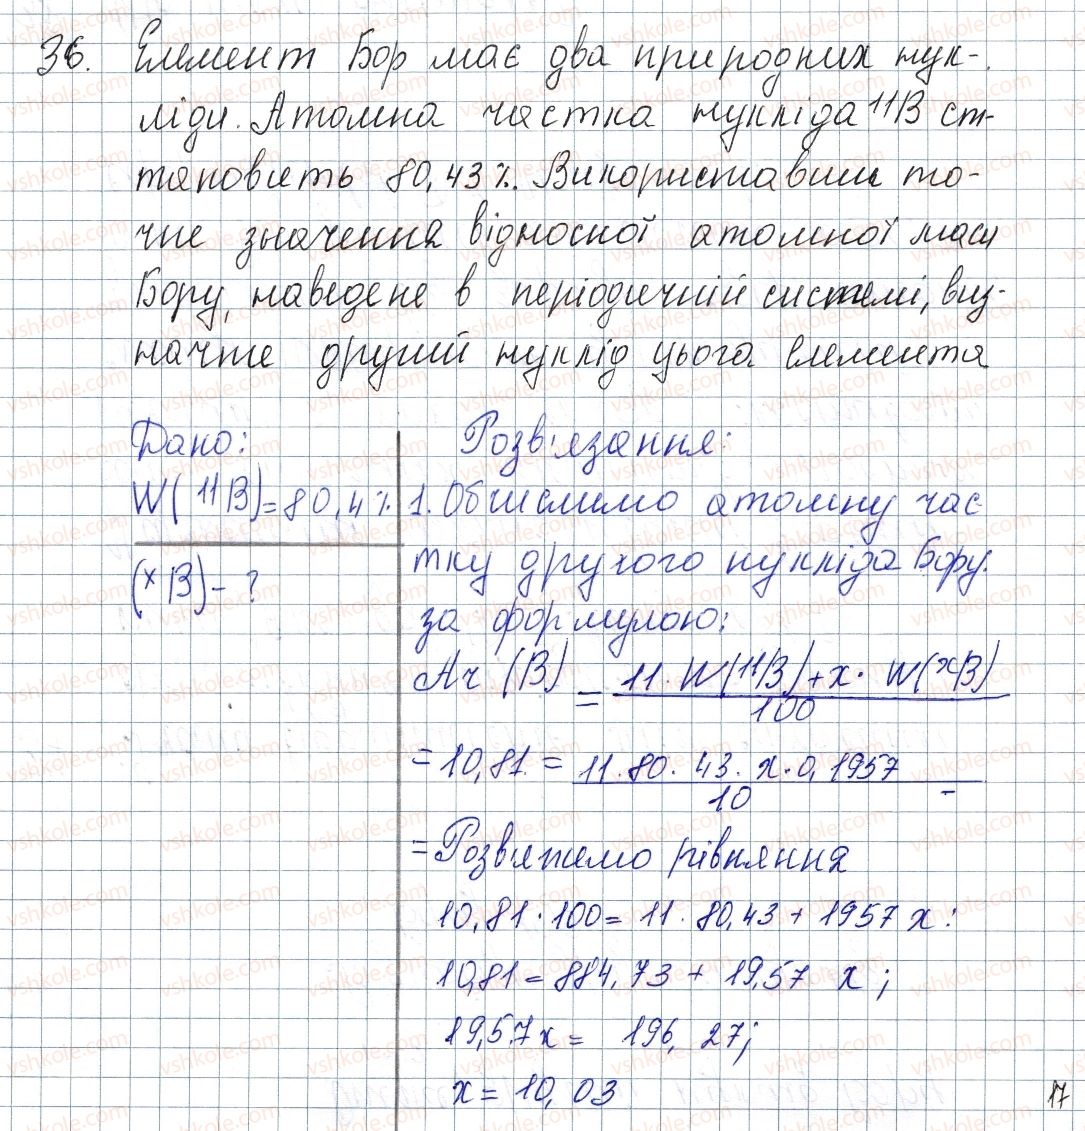 36. Елемент Бор має два природних нук-
ліди. Атомна частка нукліда 11B ст-
тановить 80,43%. Використавши то-
чне значення відносної атомної маси
Бору, наведене в періодичній системі, виз-
начте другий нуклід цього елемента
Дано:
W(11B)=80,4%
(xB)-?
Розв'язання:
1. Обчислимо атомну час
тку другого нукліда Бору.
за формулою:
Ar (B) = 11. W(11B)+x· W(xB)
100
= 10,81 = 11·80·43·x·0,1957 -
10
= Розв'яжемо рівняння
10,81·100= 11·80,43 + 1957 x:
10,81= 884,73 + 19,57 x;
19,57x= 196,27;
x= 10,03
17